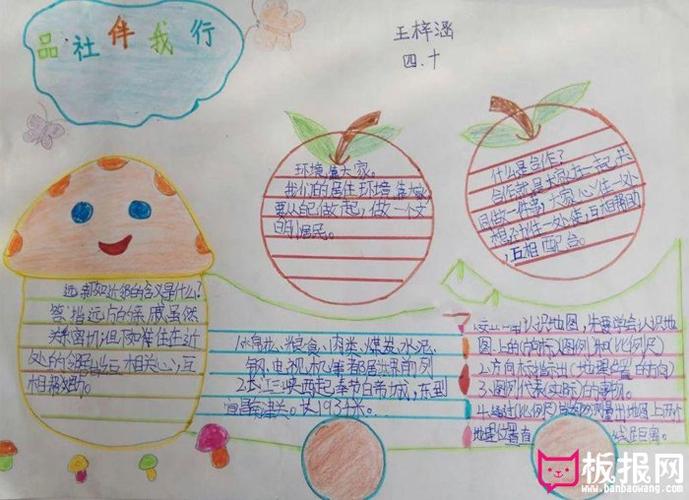 品社伴我行
王梓涵
四.十
环境靠大家。
我们的居住环境靠大家
要从自己做起,做一个文
明居民。
什么是合作?
合作就是大家在一起共
同做一件事,大家心往一处
想,劲往一处使,互相帮助
,互相配合。
远亲不如近邻的含义是什么?
答:指远方的亲戚虽然
关系密切,但不如住在近
处的邻居 相关心,互
相帮助。
粮食、肉类、煤炭、水泥
钢、电视机 前列
2.长江三峡西起奉节白帝城,东到
宜昌南津关。长193千米。
认识地图,先要学会认识地
图上的(方向标)(图例)和(比例尺)
2.方向标指示出(地理位置的方向)
3.图例代表(实际)的事物。
4.通过(比例尺) 测量出地图上两个
地理位置 距离。
板报网
www.banbaowang.com